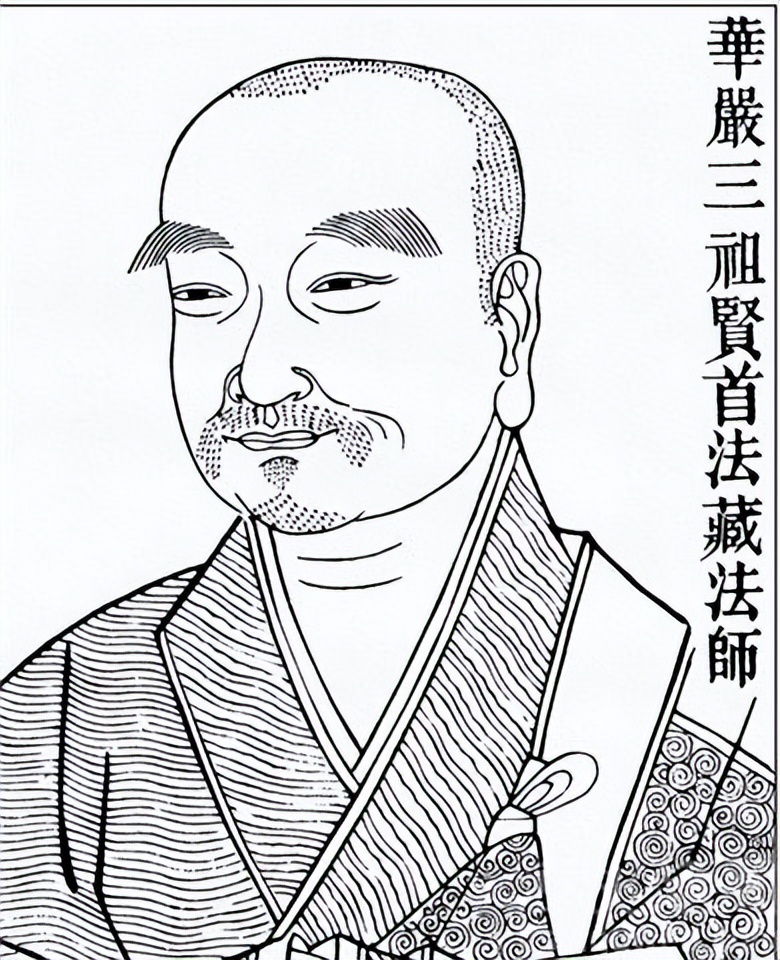 華嚴三祖賢首法藏法師